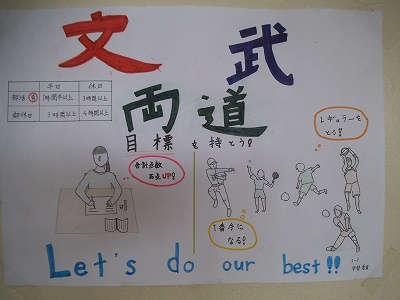 文武
両道
目標を持とう!
平日 休日
部活有 1時間半以上 3時間以上
部休日 3時間以上 4時間以上
合計点数
UP!
レギュラーを
とる!
1番手に
なる!
Let's do our best!!